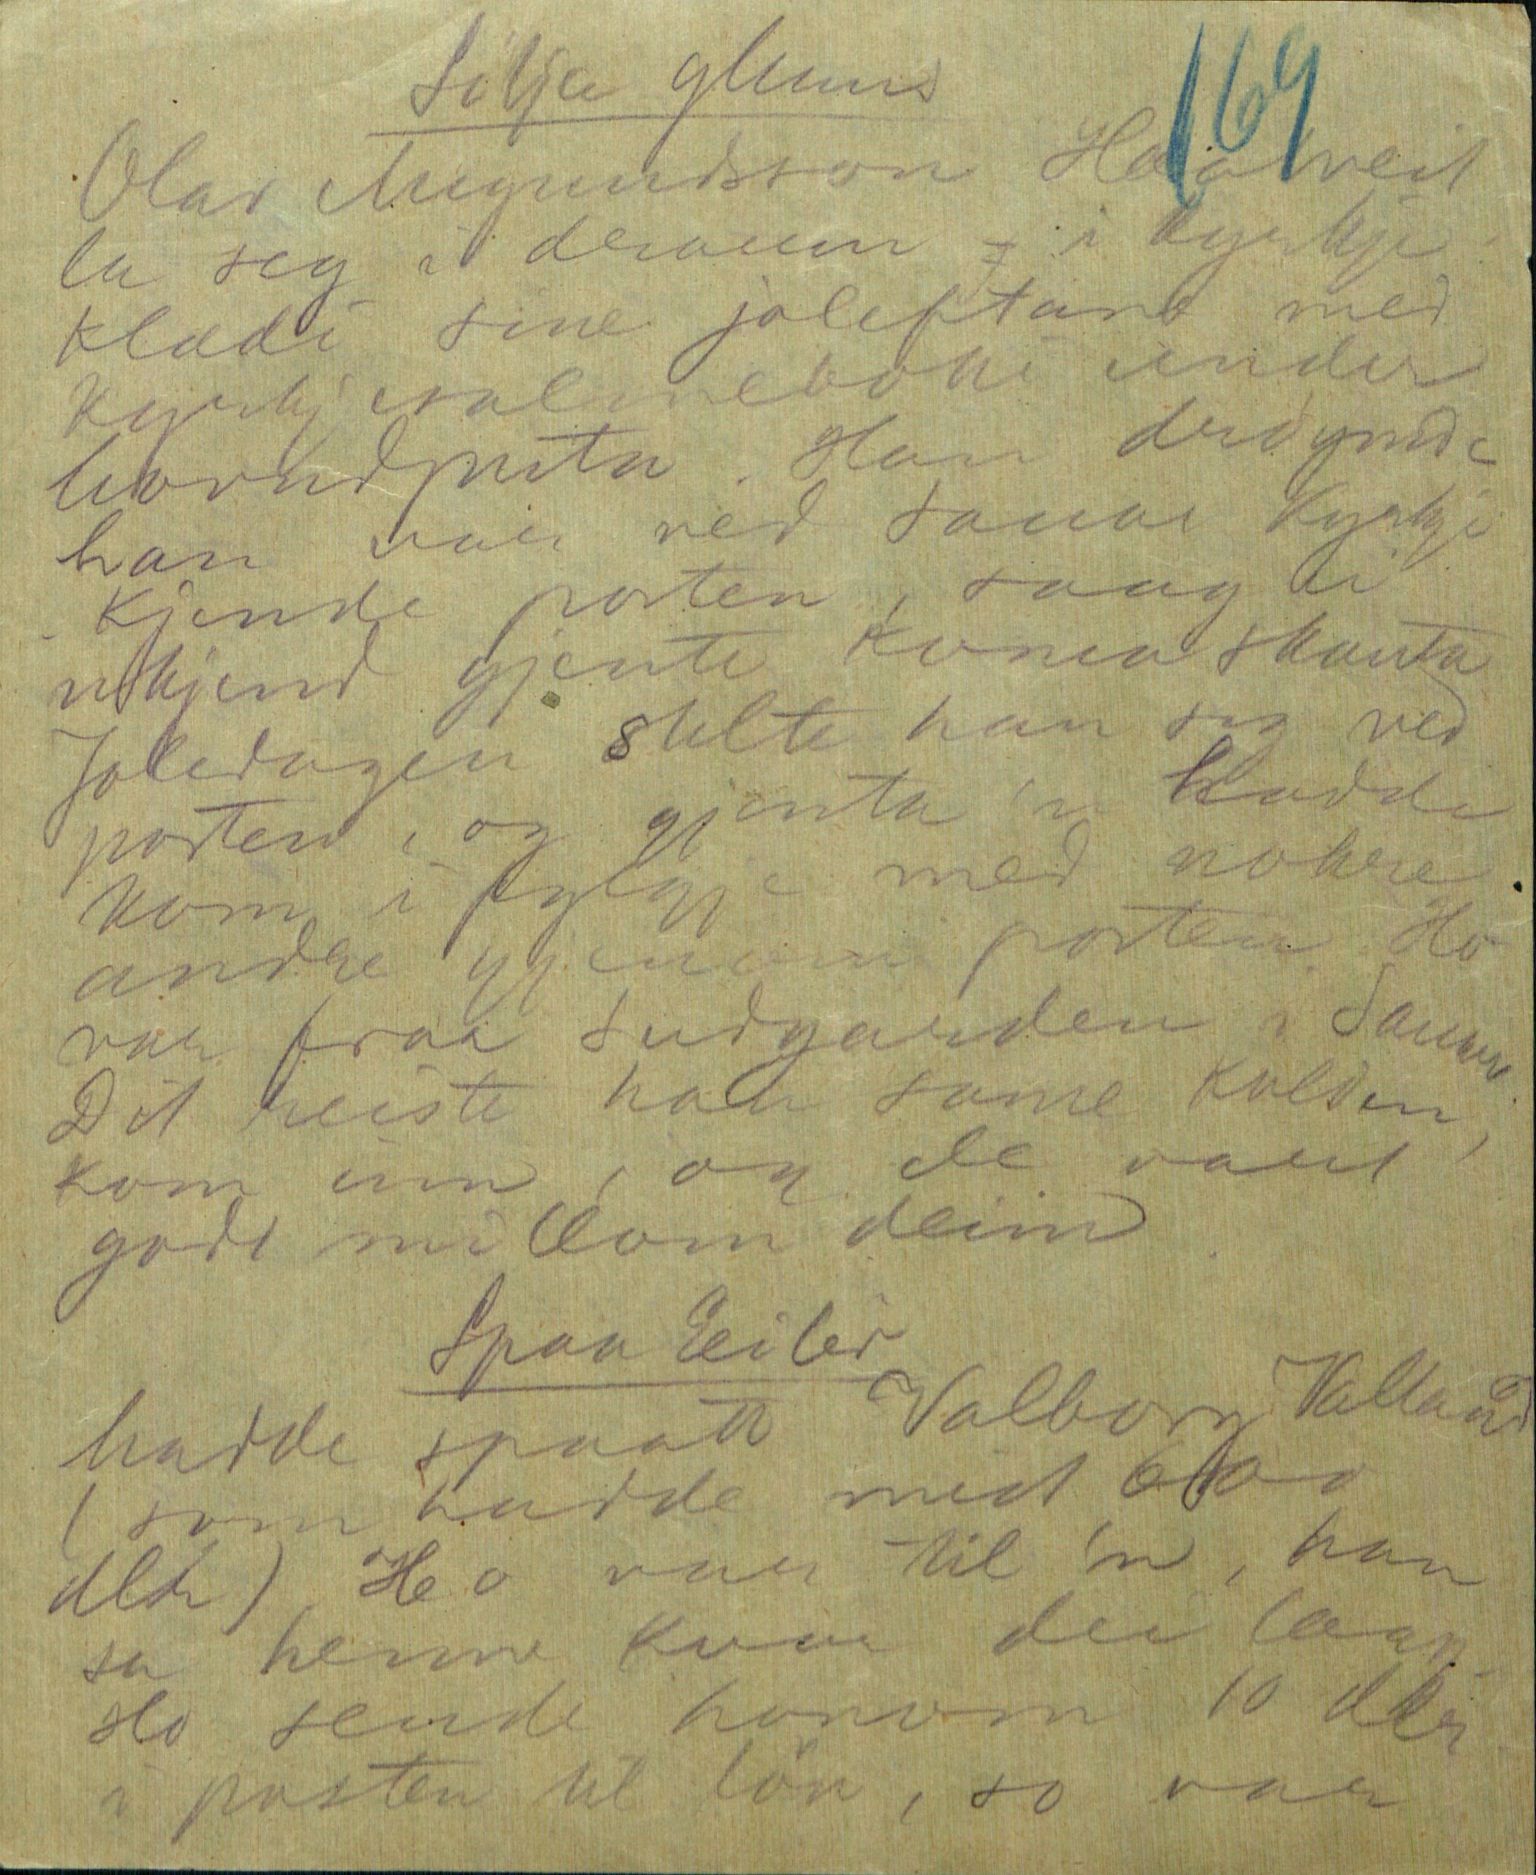 169
Olav Aasmundsson
la seg i draum i kyrkje
klædi sine joleftann med
kyrkjesalmeboki under
hovudputa. Han drøymde
han var ved Sauar kyrkje
kjende porten, saag ei
ukjend gjente koma
Joledagen stelte han seg ved
porten, og gjenta 'n hadde
kom i fylgje med nokre
andre gjenom porten. Ho
var fraa Sudgarden i Sauar
Dit reiste han same kvelden,
kom inn, og de vart
godt millom deim.
Spaa Eiliv
hadde spaatt Valborg
(som hadde mist 600
dlr) Ho var til 'n, han
sa henne kvar dei laag
Ho sende honom 10 dlr.
i posten til løn, so var